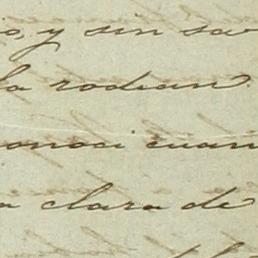 o, y sin sa
la rodean
onoci cuan
a clara de